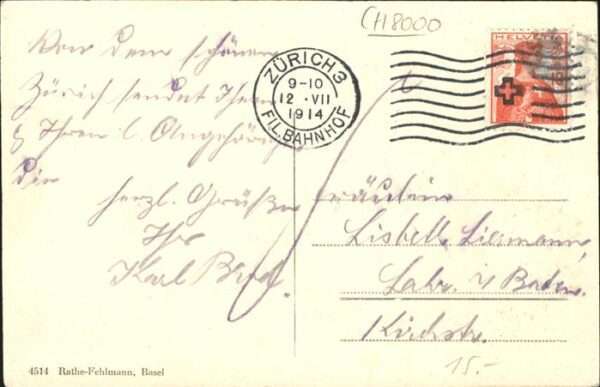 CH8000
HELVETIA
ZÜRICH 3
9-10
12 . VII
1914
FIL. BAHNHOF
Von dem schönen
Zürich sendet Ihnen
& Ihren l. Angehörigen
die
herzl. Grüße
Ihr
Karl
Fräulein
Lisbeth
Lahr i/ Baden.
Kirchstr.
15.-
4514 Rathe-Fehlmann, Basel